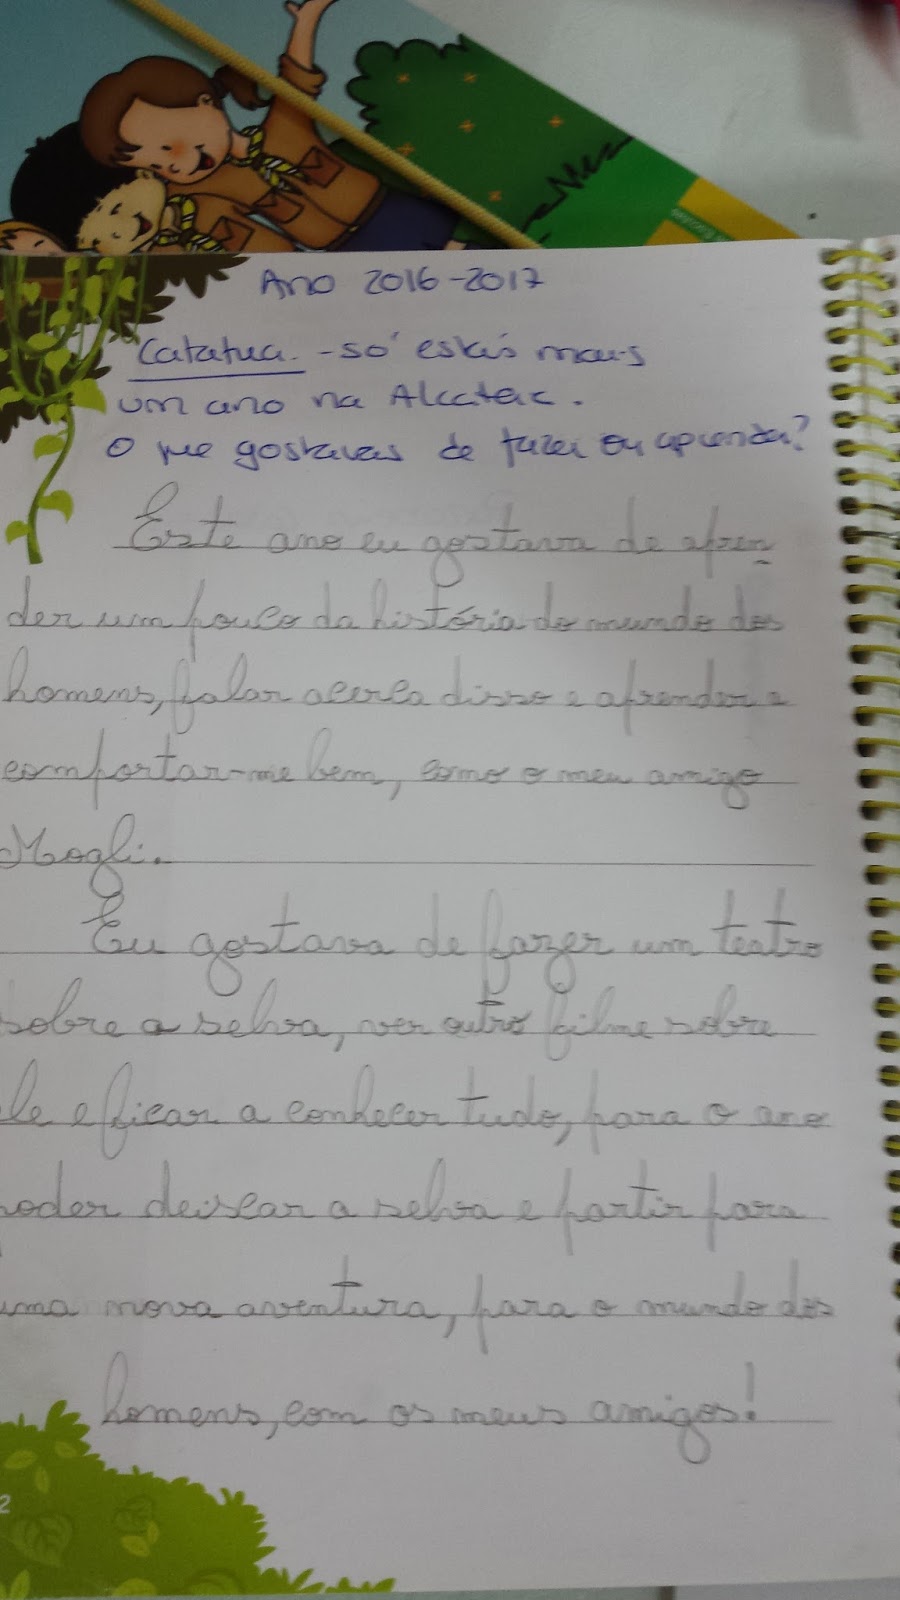 Ano 2016-2017
Catatua. - só estás mais
um ano na Alcateia.
O que gostavas de fazer ou aprender?
Este ano eu gostava de apren
der um pouco da história do mundo dos
homens, falar acerca disso e aprender a
comportar-me bem, como o meu amigo
Mogli.
Eu gostava de fazer um teatro
sobre a selva, ver outro filme sobre
ele e ficar a conhecer tudo, para o ano
poder deixar a selva e partir para
uma nova aventura, para o mundo dos
homens, com os meus amigos!
2